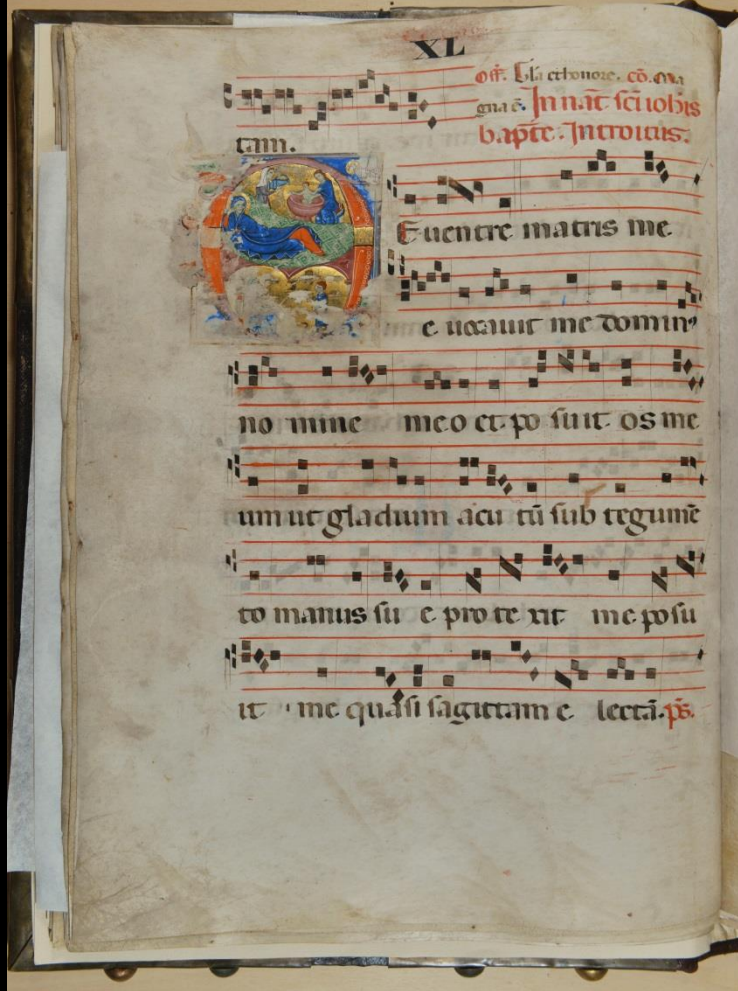 XL
off. Gla et honore. cō. Ma
gna ē. In nat sci iohis
tam. bapte. Introitus.
E uentre matris me
e uocauit me domin9
no mine meo et po suit os me
um ut gladium acu tū sub tegumē
to manus su e pro te xit me posu
it me quasi sagittam e lectā. ps.